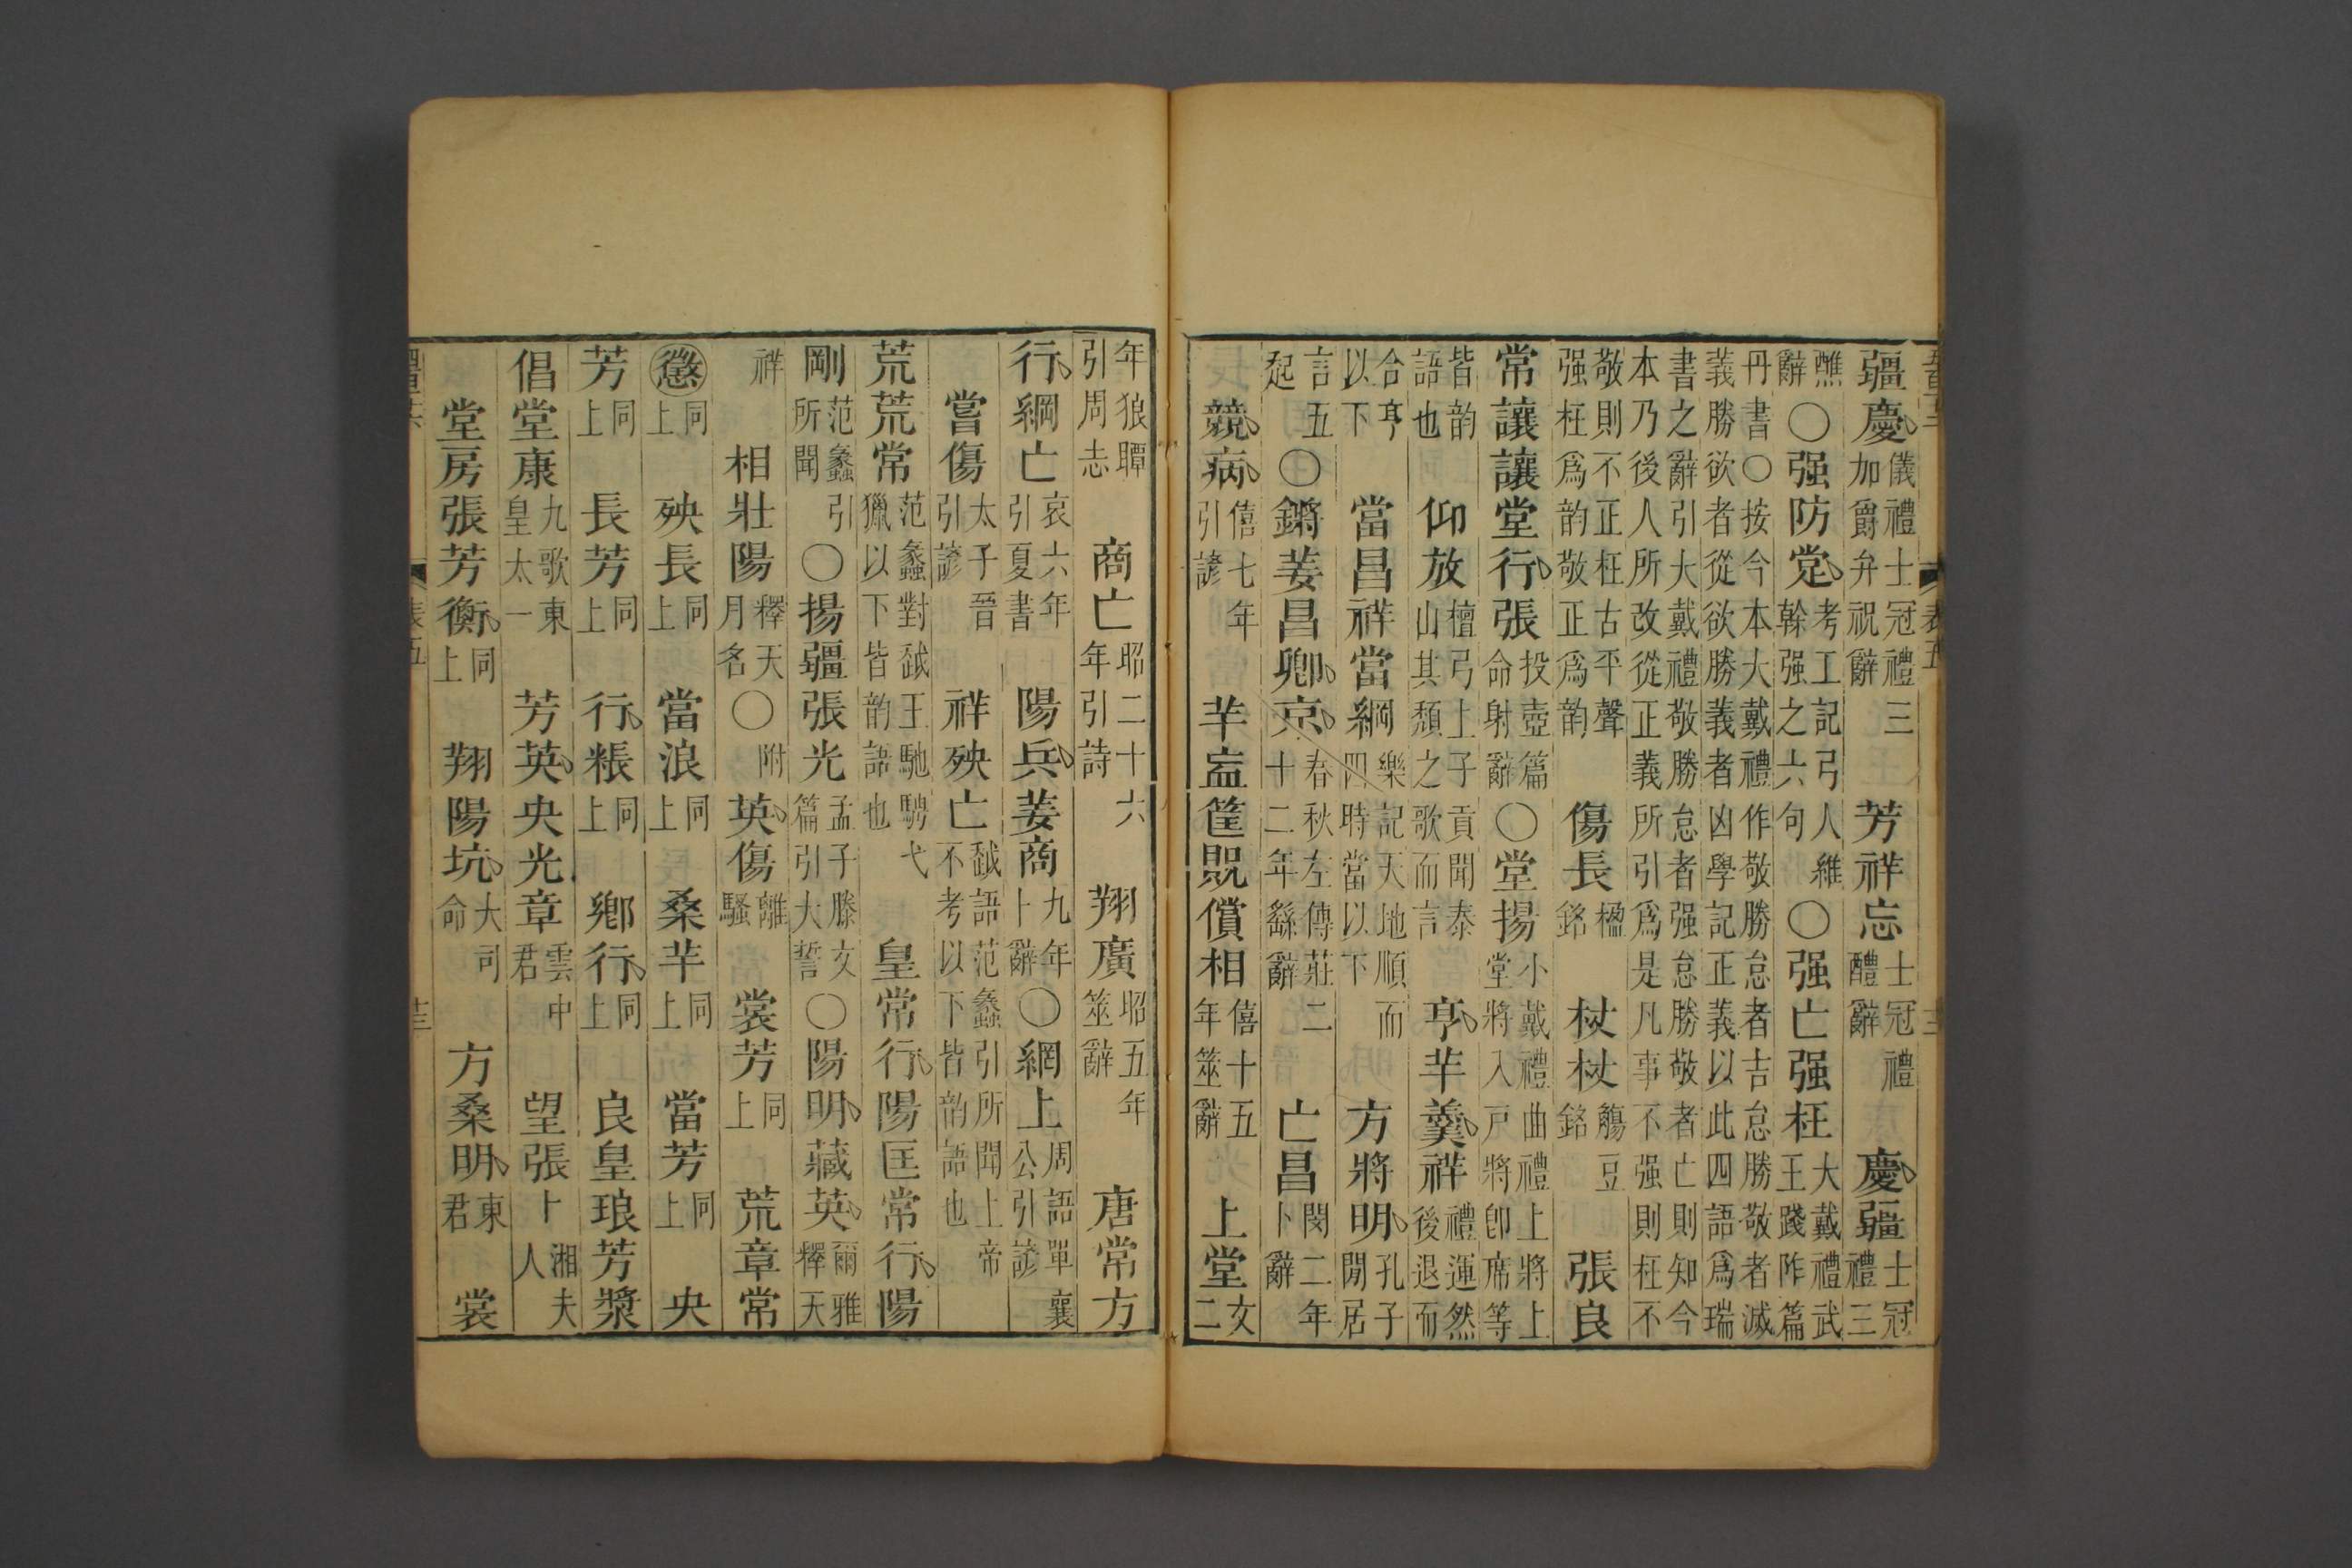 疆慶儀禮士冠禮三加爵弁祝辭 芳祥忘士冠禮醴辭 慶疆士冠禮三
醮辭○强防党考工記弓人維幹强之六句○强亡强枉大戴禮武王踐阼篇
丹書○按今本大戴禮作敬勝怠者吉怠勝敬者滅義勝欲者從欲勝義者凶學記正義以此四語爲瑞
書之辭引大戴禮敬勝怠者强怠勝敬者亡則知今本乃後人所改從正義所引爲是凡事不强則枉不
敬則不正枉古平聲强枉爲韵敬正爲韵 傷長楹銘 杖杖觴豆銘 張良
常讓讓堂行張投壺篇命射辭○堂揚小戴禮曲禮上將上堂將入戸將卽席等
皆韵語也 仰放檀弓上子貢聞泰山其頹之歌而言 亨羊羹祥禮運然後退而
合亨以下 當昌祥當綱樂記天地順而四時當以下 方將明孔子閒居
言五起○鏘姜昌卿京春秋左傳莊二十二年繇辭 亡昌閔二年卜辭
競病僖七年引諺 羊衁筐貺償相僖十五年筮辭 上堂文二
年狼瞫引周志 商亡昭二十六年引詩 翔廣昭五年筮辭 唐常方
行綱亡哀六年引夏書 陽兵姜商九年卜辭○網上周語單襄公引諺
嘗傷太子晉引諺 祥殃亡越語范蠡引所聞上帝不考以下皆韵語也
荒荒常范蠡對越王馳騁弋獵以下皆韵語也 皇常行陽匡常行陽
剛范蠡引所聞○揚疆張光孟子滕文篇引大誓○陽明藏英爾雅釋天
祥 相壯陽釋天月名○附 英傷離騷 裳芳同上 荒章常
懲同上 殃長同上 當浪同上 桑羊同上 當芳同上 央
芳同上 長芳同上 行粻同上 鄉行同上 良皇琅芳漿
倡堂康九歌東皇太一 芳英央光章雲中君 望張湘夫人
堂房張芳衡同上 翔陽坑大司命 方桑明東君 裳